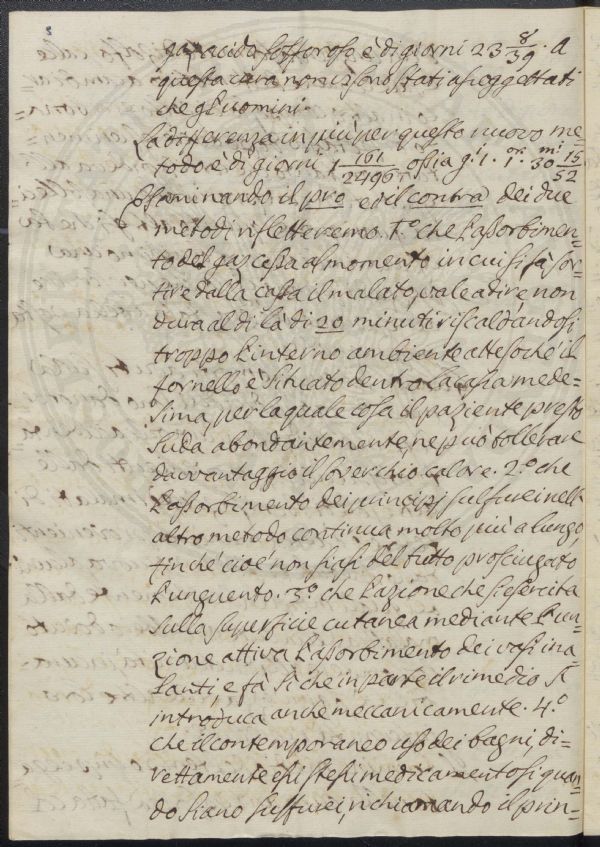 gaz acido solforoso è di giorni 23 8/39. A
questa cura non vi sono stati assoggettati
che gli uomini.
La differenza in più per questo nuovo me=
todo è di giorni 1 161/22496, ossia g.i 1. or. 1. m.i 30 15/52
Essaminando il pro ed il contra dei due
metodi rifletteremo 1.o che l'assorbimen=
to del gaz cessa al momento in cui si fà sor=
tire dalla cassa il malato, vale a dire non
dura al di là di 20 minuti riscaldandosi
troppo l'interno ambiente attesoche il
fornello è situato dentro la cassa mede=
sima, per la quale cosa il paziente presto
suda abondantemente, ne può tollerare
davvantaggio il soverchio calore. 2.o che
l'assorbimento dei principj sulfurei nell'
altro metodo continua molto più a lungo,
finché cioé non siasi del tutto prosciugato
l'unguento. 3.o che l'azione che si esercita
sulla superficie cutanea mediante l'un=
zione attiva l'assorbimento dei vasi ina=
lanti, e fà sì che in parte il rimedio si
introduca anche meccanicamente. 4.o
che il contemporaneo uso dei bagni, di=
rettamente essi stessi medicamentosi quan=
do siano sulfurei, richiamando il prin=